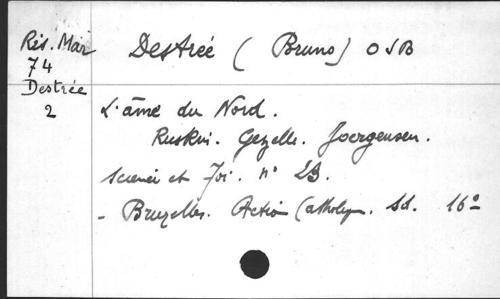 Rés. Mar
74
Destrée
2
Destrée (Bruno) OSB
L'âme du Nord.
Ruskin. Gezelle. Joergensen.
Science et Foi. n° 23.
- Bruxelles. Action Catholiq. Sd. 16°